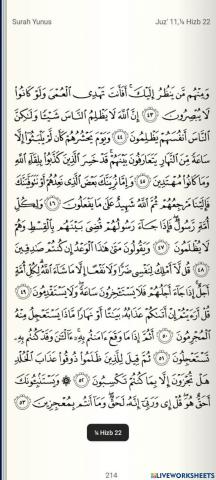 Surah Yunus Juz' 11,¼ Hizb 22
وَمِنْهُم مَّن يَنظُرُ إِلَيْكَ ۚ أَفَأَنتَ تَهْدِى الْعُمْىَ وَلَوْ كَانُوا
لَا يُبْصِرُونَ ٤٣ إِنَّ اللَّهَ لَا يَظْلِمُ النَّاسَ شَيْئًا وَلَٰكِنَّ
النَّاسَ أَنفُسَهُمْ يَظْلِمُونَ ٤٤ وَيَوْمَ يَحْشُرُهُمْ كَأَن لَّمْ يَلْبَثُوا إِلَّا
سَاعَةً مِّنَ النَّهَارِ يَتَعَارَفُونَ بَيْنَهُمْ ۚ قَدْ خَسِرَ الَّذِينَ كَذَّبُوا بِلِقَاءِ اللَّهِ
وَمَا كَانُوا مُهْتَدِينَ ٤٥ وَإِمَّا نُرِيَنَّكَ بَعْضَ الَّذِى نَعِدُهُمْ أَوْ نَتَوَفَّيَنَّكَ
فَإِلَيْنَا مَرْجِعُهُمْ ثُمَّ اللَّهُ شَهِيدٌ عَلَىٰ مَا يَفْعَلُونَ ٤٦ وَلِكُلِّ
أُمَّةٍ رَّسُولٌ ۖ فَإِذَا جَاءَ رَسُولُهُمْ قُضِىَ بَيْنَهُم بِالْقِسْطِ وَهُمْ
لَا يُظْلَمُونَ ٤٧ وَيَقُولُونَ مَتَىٰ هَٰذَا الْوَعْدُ إِن كُنتُمْ صَادِقِينَ
٤٨ قُل لَّا أَمْلِكُ لِنَفْسِى ضَرًّا وَلَا نَفْعًا إِلَّا مَا شَاءَ اللَّهُ ۗ لِكُلِّ أُمَّةٍ
أَجَلٌ ۚ إِذَا جَاءَ أَجَلُهُمْ فَلَا يَسْتَأْخِرُونَ سَاعَةً ۖ وَلَا يَسْتَقْدِمُونَ ٤٩
قُلْ أَرَءَيْتُمْ إِنْ أَتَىٰكُمْ عَذَابُهُ بَيَٰتًا أَوْ نَهَارًا مَّاذَا يَسْتَعْجِلُ مِنْهُ
الْمُجْرِمُونَ ٥٠ أَثُمَّ إِذَا مَا وَقَعَ ءَامَنتُم بِهِ ۚ ءَآلْـَٰنَ وَقَدْ كُنتُم بِهِ
تَسْتَعْجِلُونَ ٥١ ثُمَّ قِيلَ لِلَّذِينَ ظَلَمُوا ذُوقُوا عَذَابَ الْخُلْدِ
هَلْ تُجْزَوْنَ إِلَّا بِمَا كُنتُمْ تَكْسِبُونَ ٥٢ ۞ وَيَسْتَنۢبِـُٔونَكَ
أَحَقٌّ هُوَ ۖ قُلْ إِى وَرَبِّى إِنَّهُ لَحَقٌّ ۖ وَمَا أَنتُم بِمُعْجِزِينَ ٥٣
¼ Hizb 22
214
LIVEWORKSHEETS